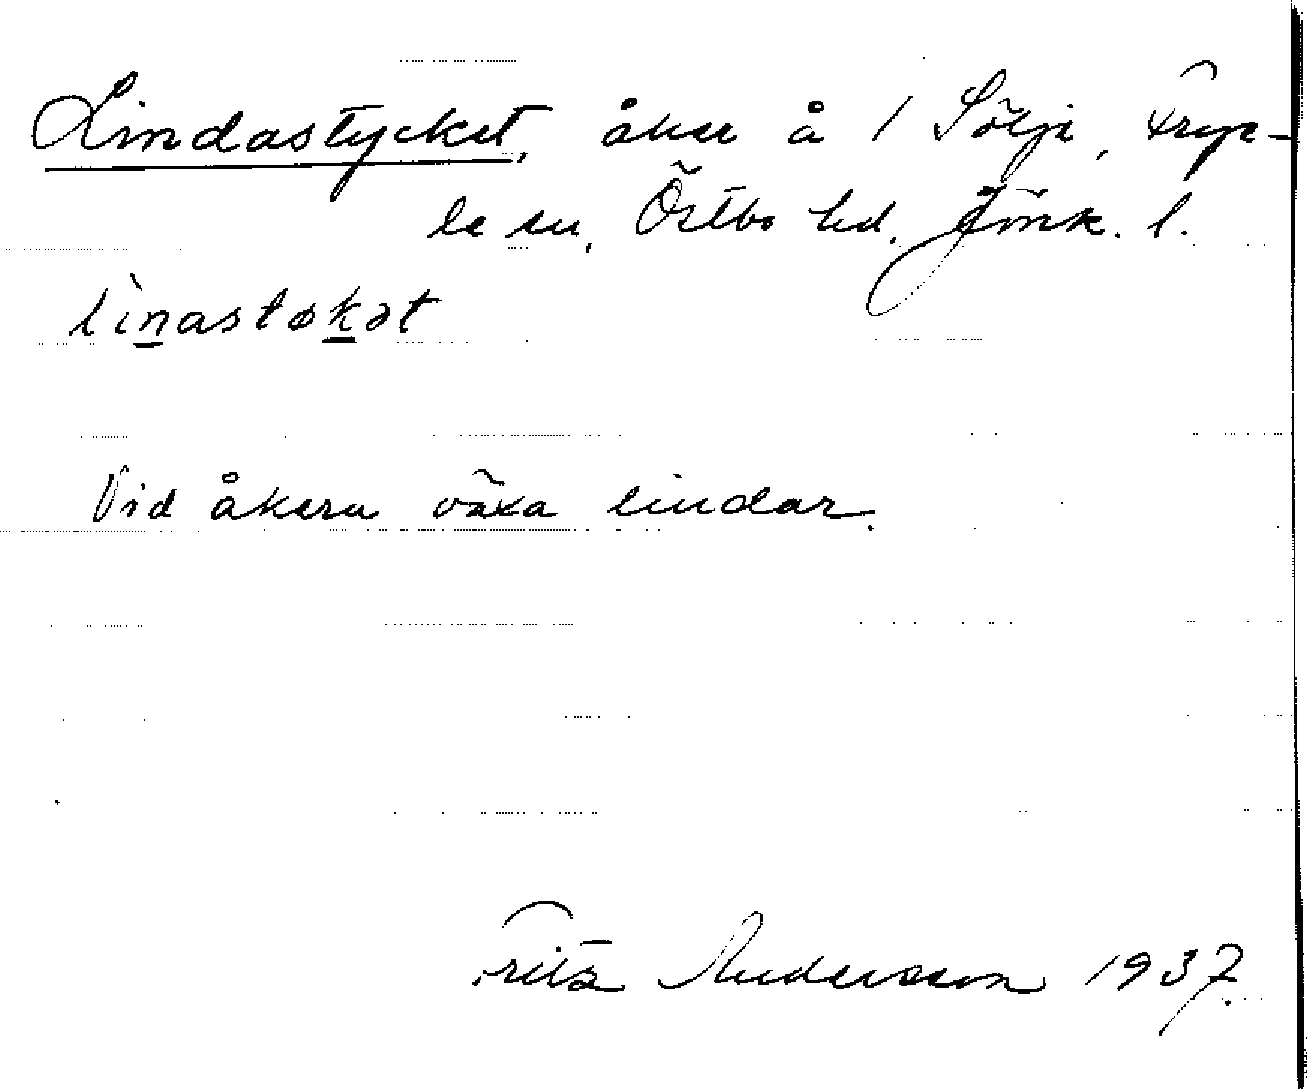 Lindastycket, åker å 1 Sölje, Frye-
le sn, Östbo hd. Jönk. l.
lìnastøkət
Vid åkern växa lindar.
Fritz Andersson 1937.